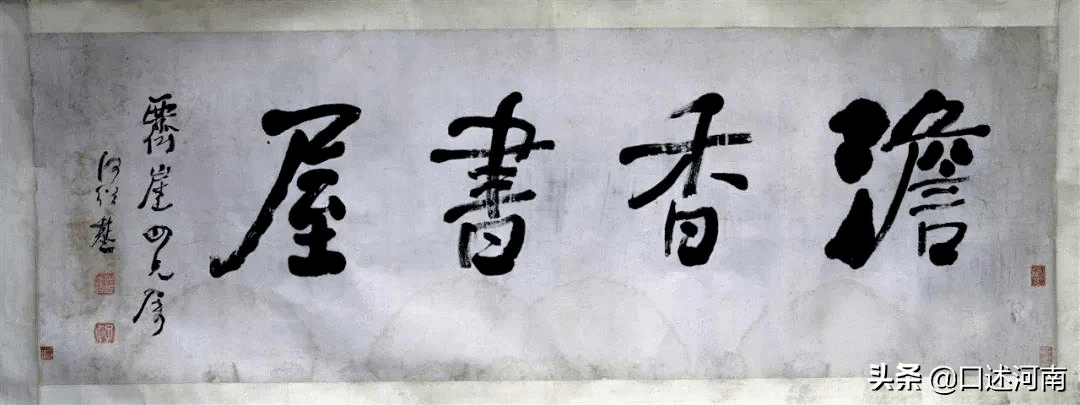 澹香書屋
霽崖四兄屬
何紹基
头条 @口述河南